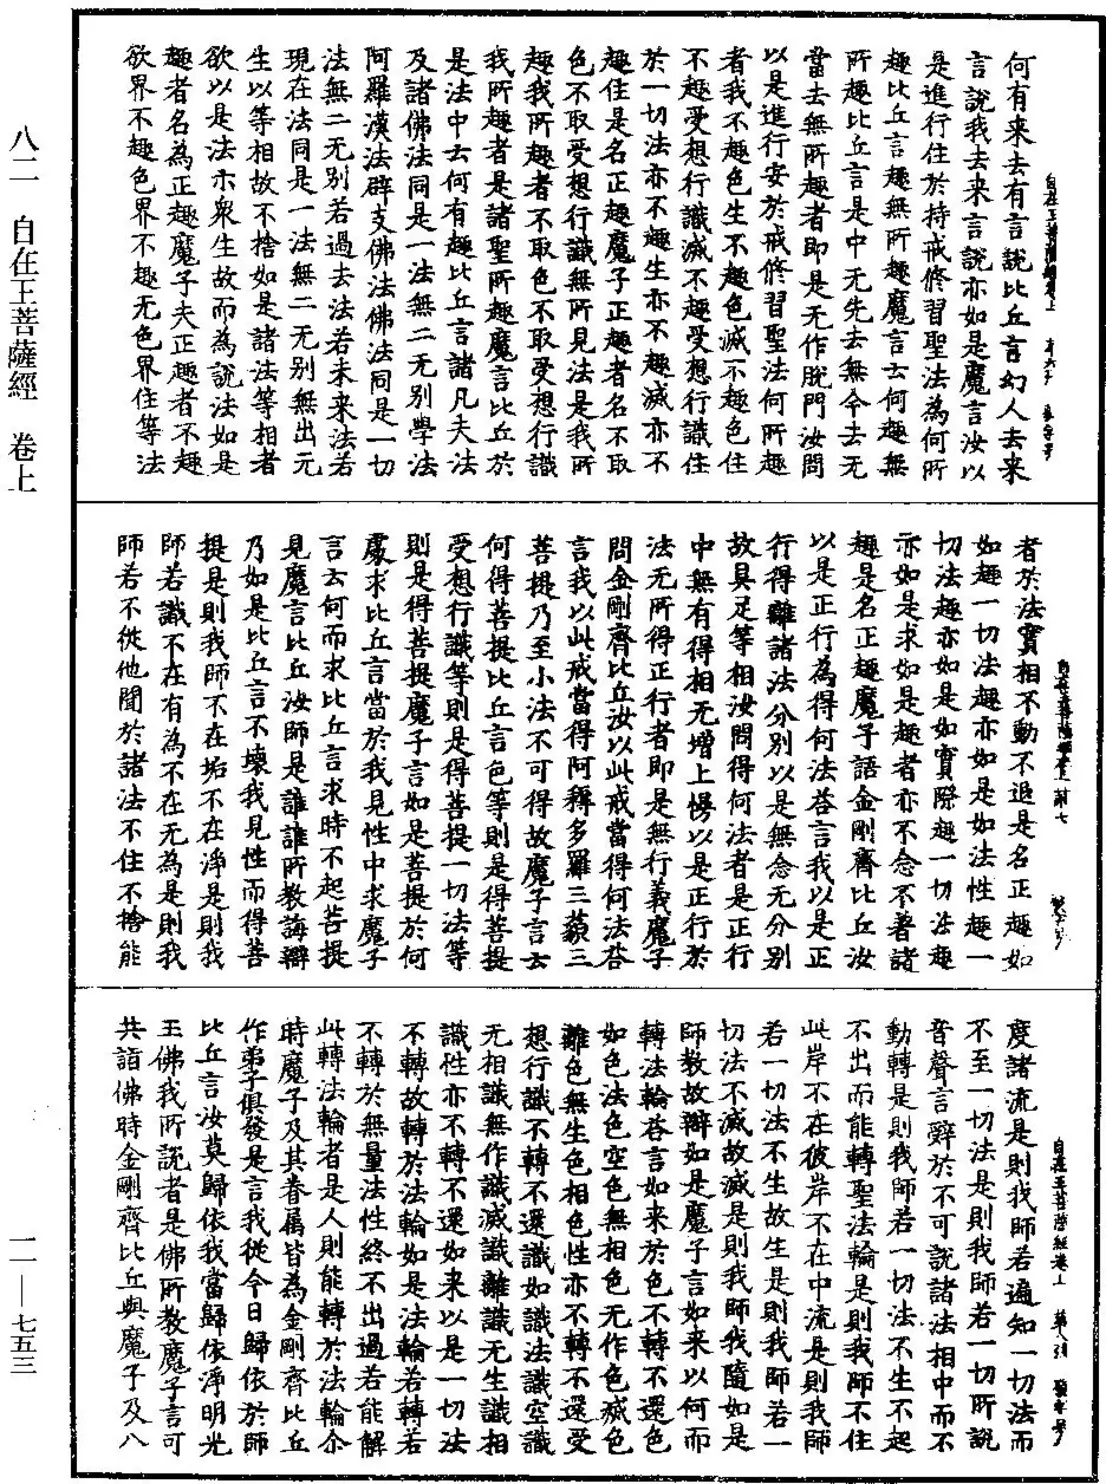 八二　自在王菩薩經　卷上
一一—七五三
何有来去有言說比丘言幻人去来
言說我去来言說亦如是魔言汝以
是進行住於持戒修習聖法為何所
趣比丘言趣無所趣魔言云何趣無
所趣比丘言是中无先去無今去无
當去無所趣者即是无作脫門汝問
以是進行安於戒修習聖法何所趣
者我不趣色生不趣色滅不趣色住
不趣受想行識滅不趣受想行識住
於一切法亦不趣生亦不趣滅亦不
趣住是名正趣魔子正趣者名不取
色不取受想行識無所見法是我所
趣我所趣者不取色不取受想行識
我所趣者是諸聖所趣魔言比丘於
是法中云何有趣比丘言諸凡夫法
及諸佛法同是一法無二无別學法
阿羅漢法辟支佛法佛法同是一切
法無二无別若過去法若未来法若
現在法同是一法無二无別無出无
生以等相故不捨如是諸法等相者
欲以是法示衆生故而為說法如是
趣者名為正趣魔子夫正趣者不趣
欲界不趣色界不趣无色界住等法
者於法實相不動不退是名正趣如
如趣一切法趣亦如是如法性趣一
切法趣亦如是如實際趣一切法趣
亦如是求如是趣者亦不念不著諸
趣是名正趣魔子語金剛齊比丘汝
以是正行為得何法荅言我以是正
行得離諸法分別以是無念无分別
故具足等相汝問得何法者是正行
中無有得相无增上慢以是正行於
法无所得正行者即是無行義魔子
問金剛齊比丘汝以此戒當得何法荅
言我以此戒當得阿耨多羅三藐三
菩提乃至小法不可得故魔子言云
何得菩提比丘言色等則是得菩提
受想行識等則是得菩提一切法等
則是得菩提魔子言如是菩提於何
處求比丘言當於我見性中求魔子
言云何而求比丘言求時不起菩提
見魔言比丘汝師是誰誰所教誨辯
乃如是比丘言不壞我見性而得菩
提是則我師不在垢不在淨是則我
師若識不在有為不在无為是則我
師若不從他聞於諸法不住不捨能
度諸流是則我師若遍知一切法而
不至一切法是則我師若一切所說
音聲言辭於不可說諸法相中而不
動轉是則我師若一切法不生不起
不出而能轉聖法輪是則我師不住
此岸不在彼岸不在中流是則我師
若一切法不生故生是則我師若一
切法不滅故滅是則我師我隨如是
師教故辯如是魔子言如来以何而
轉法輪荅言如来於色不轉不還色
如色法色空色無相色无作色滅色
離色無生色相色性亦不轉不還受
想行識不轉不還識如識法識空識
无相識無作識滅識離識无生識相
識性亦不轉不還如来以是一切法
不轉故轉於法輪如是法輪若轉若
不轉於無量法性終不出過若能解
此轉法輪者是人則能轉於法輪尒
時魔子及其眷属皆為金剛齊比丘
作弟子俱發是言我從今日歸依於師
比丘言汝莫歸依我當歸依淨明光
王佛我所說者是佛所教魔子言可
共詣佛時金剛齊比丘與魔子及八